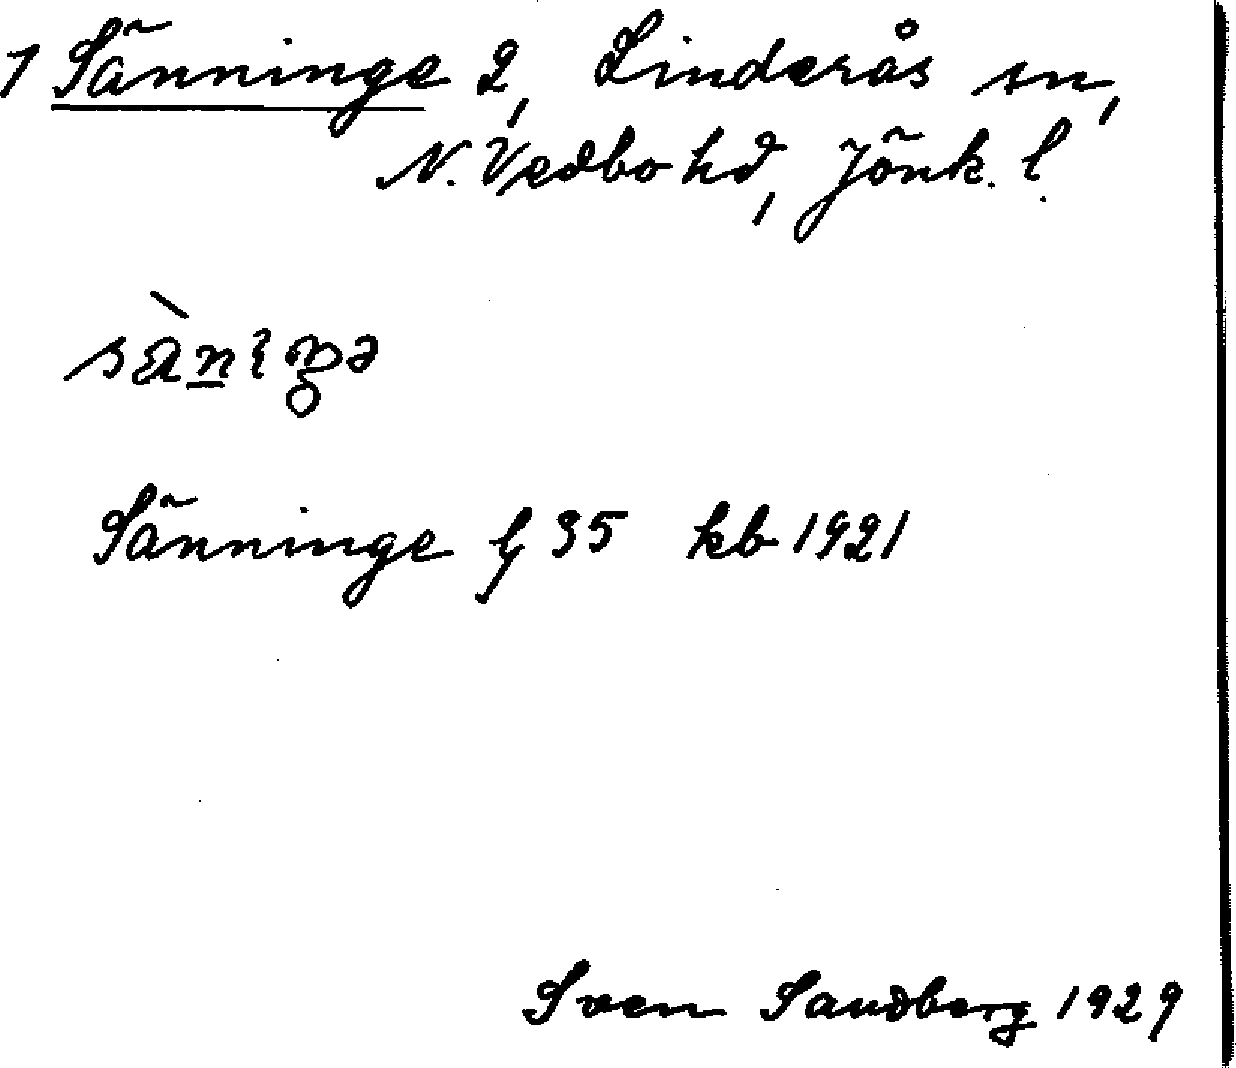 1 Sänninge 2, Linderås sn,
N. Vedbo hd, Jönk. l.
Sänninge § 35 kb 1921
Sven Sandberg 1929